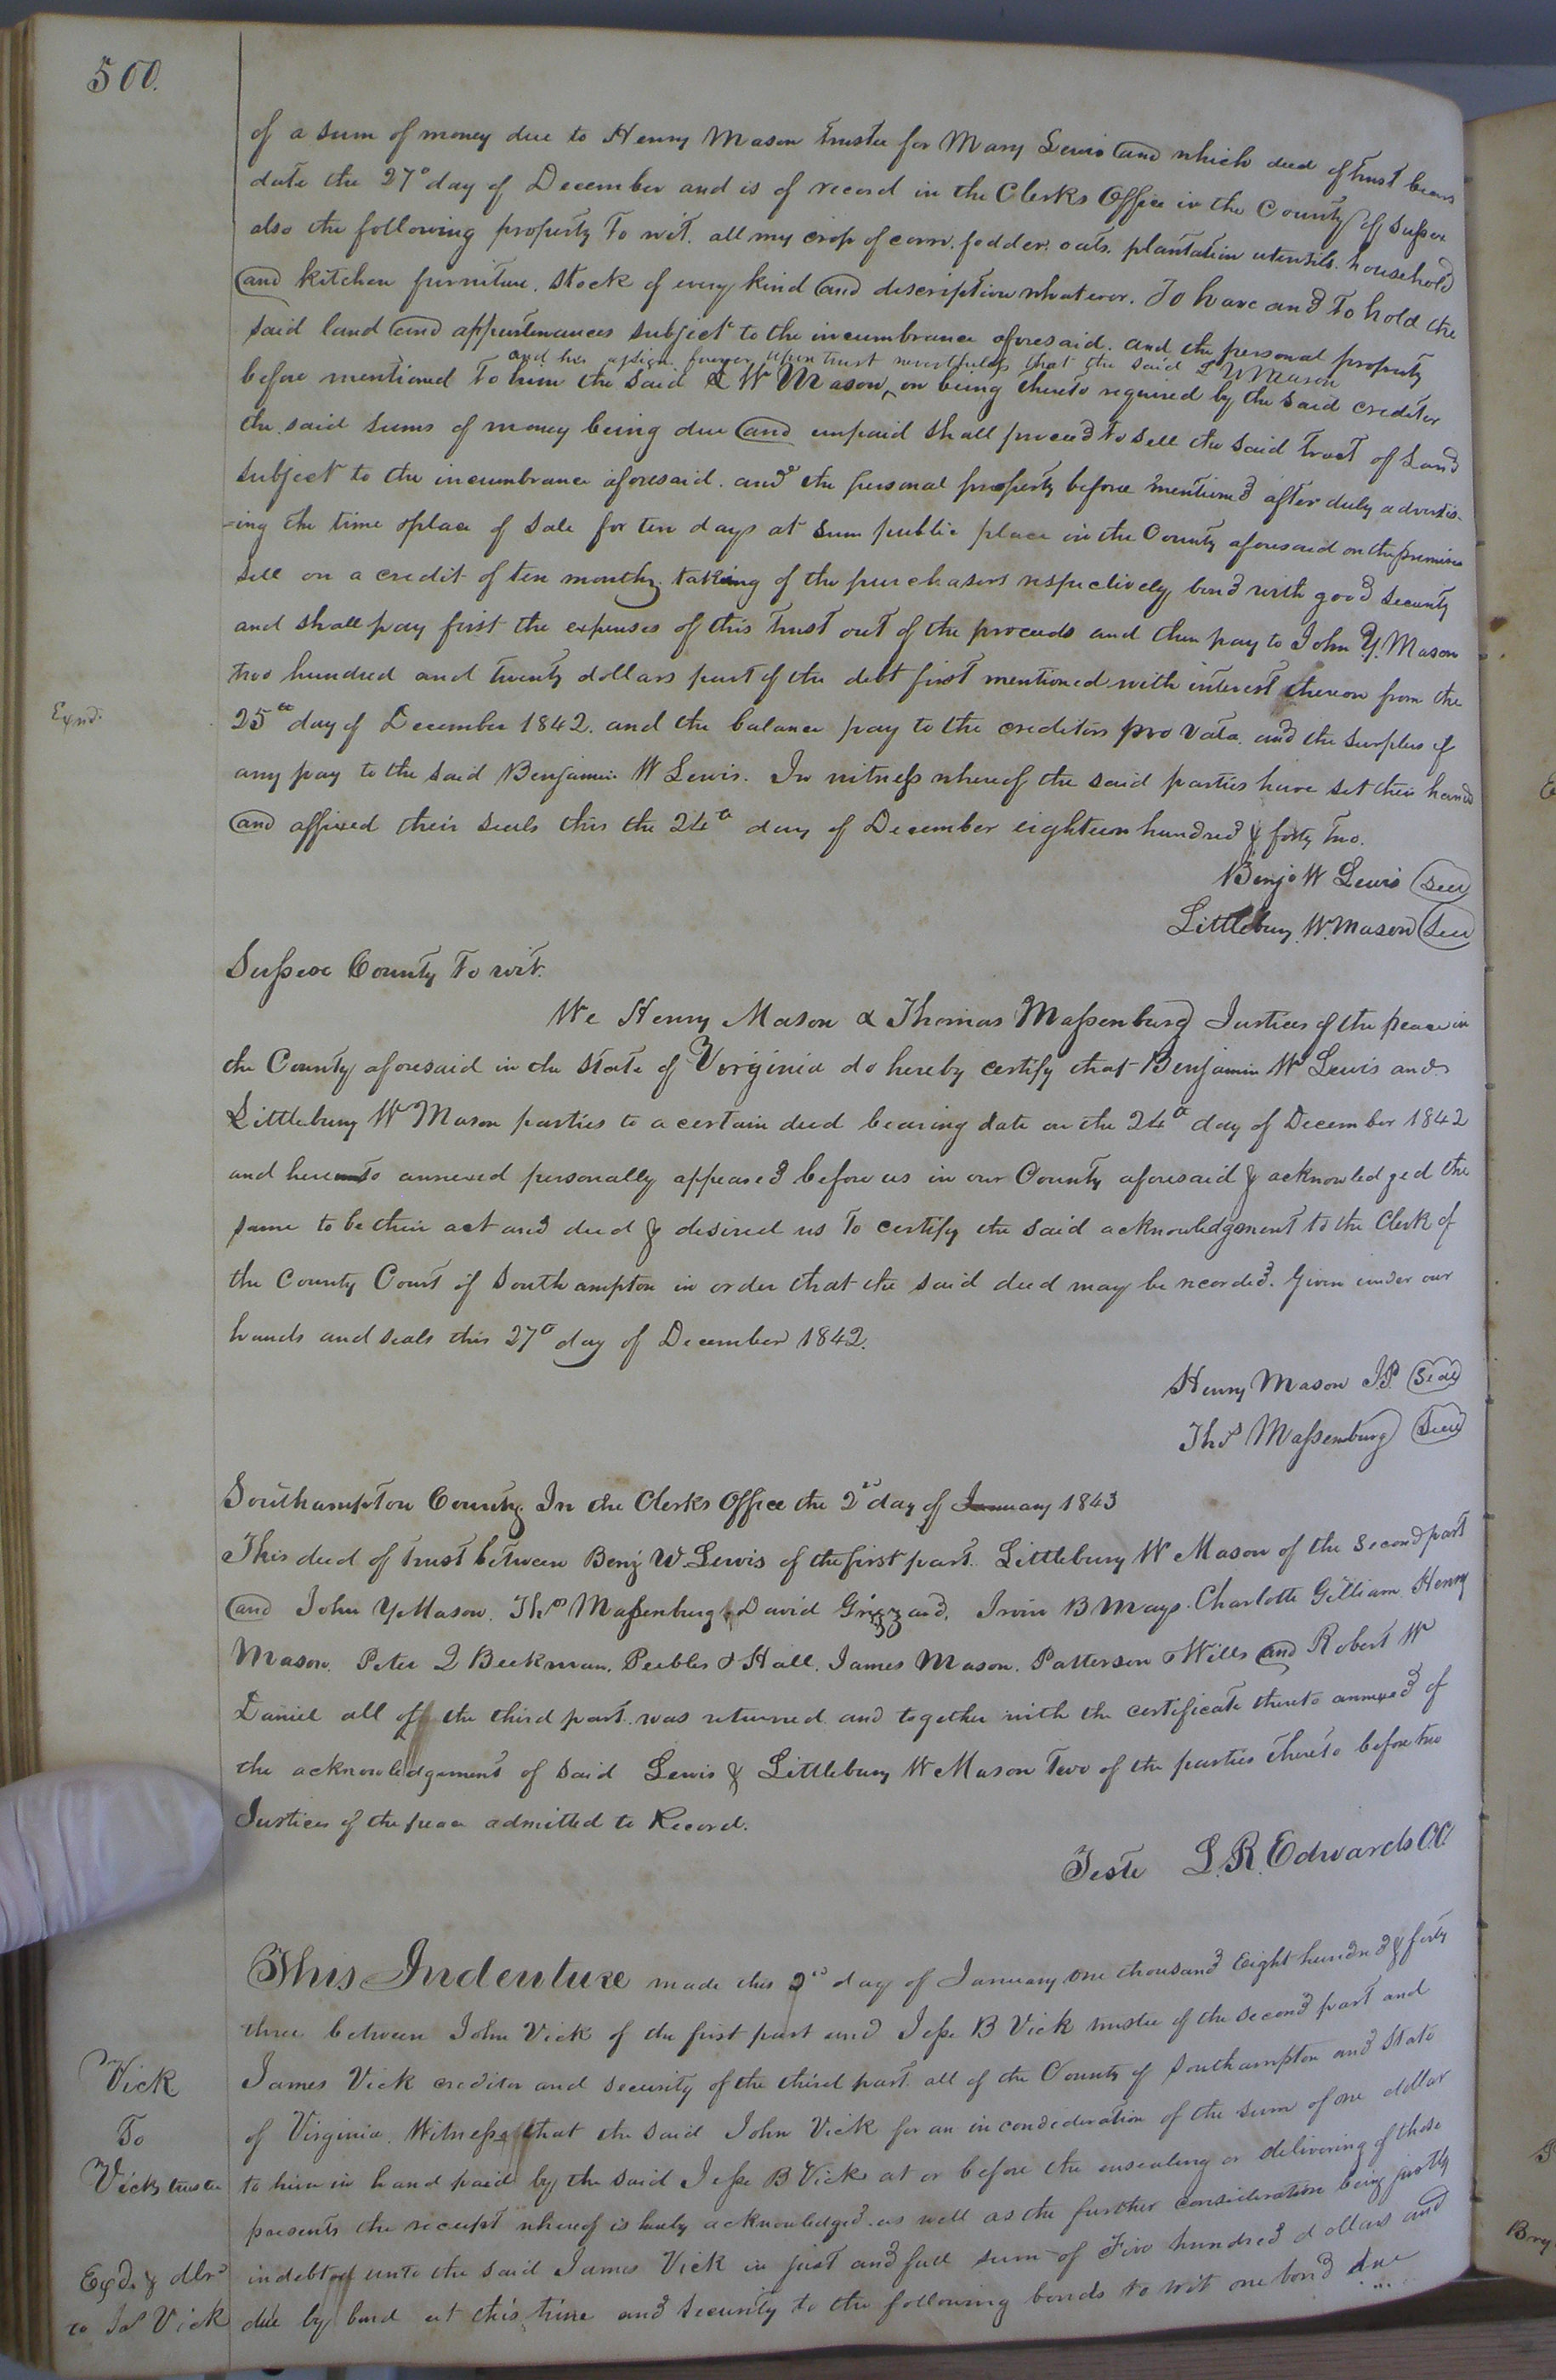 500.
of a sum of money due to Henry Mason Trustee for Mary Lewis and which deed of trust bears
date the 27th day of December and is of record in the Clerks Office in the County of Sussex
also the following property to wit. all my crop of corn. fodder. oats. plantation utensils. household
and kitchen furniture. Stock of every kind and description whatever. To have and to hold the
said land and appurtenances subject to the incumbrance aforesaid. and the personal property
and his assigns forever upon trust nevertheless that the said L W Mason
before mentioned to him the said L W Mason, on being thereto required by the said creditor
the said sums of money being due and unpaid shall proceed to sell the said tract of Land
subject to the incumbrance aforesaid. and the personal property before mentioned after duly advertis-
-ing the time & place of Sale for ten days at sum public place in the County aforesaid on the premises
sell on a credit of ten months. taking of the purchasers respectively bond with good security
and shall pay first the expenses of this trust out of the proceeds and then pay to John Y. Mason
two hundred and twenty dollars part of the debt first mentioned with interest thereon from the
Exnd.
25th day of December 1842. and the balance pay to the creditors pro rata. and the surplus if
any pay to the said Benjamin W Lewis. In witness whereof the said parties have set their hands
and affixed their seals this the 24th day of December eighteen hundred & forty two.
Benj W Lewis Seal
Littlebury W. Mason Seal
Sussex County to wit.
We Henry Mason & Thomas Massenburg Justices of the peace in
the County aforesaid in the State of Virginia do hereby certify that Benjamin W Lewis and
Littlebury W Mason parties to a certain deed bearing date on the 24th day of December 1842
and hereunto annexed personally appeared before us in our County aforesaid & acknowledged the
same to be their act and deed & desired us to certify the said acknowledgement to the Clerk of
the County Court of Southampton in order that the said deed may be recorded. Given under our
hands and seals this 27th day of December 1842.
Henry Mason J.P. Seal
Thos Massenburg Seal
Southampton County. In the Clerks Office the 2nd day of January 1843
This deed of trust between Benj W. Lewis of the first part. Littlebury W Mason of the second part
and John Y Mason. Thos Massenburg. David Grizzard. Irvin B Mays. Charlotte Gilliam. Henry
Mason. Peter Q Beekman. Peebles & Hall. James Mason. Patterson & Wills and Robert W
Daniel all of the third part was returned and together with the certificate thereto annexed of
the acknowledgement of said Lewis & Littlebury W Mason Two of the parties thereto before two
Justices of the peace admitted to Record.
Teste L. R. Edwards C.C.
This Indenture made this 2nd day of January one thousand Eight hundred & forty
three between John Vick of the first part and Jesse B Vick trustee of the second part and
Vick
James Vick creditor and security of the third part all of the County of Southampton and State
To
of Virginia. Witnesseth that the said John Vick for an in consideration of the sum of one dollar
Vicks trustee
to him in hand paid by the said Jesse B Vick at or before the ensealing or delivering of these
presents the receipt whereof is hereby acknowledged as well as the further consideration being justly
Exd. & dlrd
indebted unto the said James Vick in just and full sum of Five hundred dollars and
to Jas Vick
due by bond at this time and security to the following bonds to wit one bond due